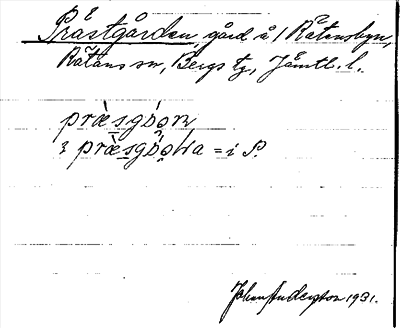 Prästgården, gård å 1 Rätansbyn,
Rätans sn, Bergs tg, Jämtl. l.
præ̀sgɔ̣n,
præ̀sgɔ̣ɳa = i P.
Johan Anderson 1931.